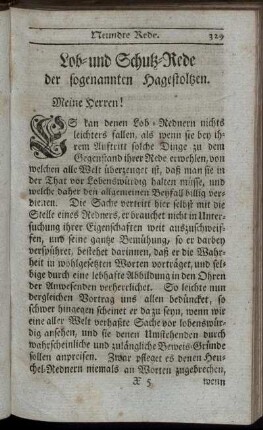 Neundte Rede. 329
Lob- und Schutz-Rede
der sogenannten Hagestoltzen.
Meine Herren!
ES kan denen Lob-Rednern nichts
leichters fallen, als wenn sie bey ih-
rem Auftritt solche Dinge zu dem
Gegenstand ihrer Rede erwehlen, von
welchen alle Welt überzeuget ist, daß man sie in
der That vor Lobenswürdig halten müsse, und
welche daher den allgemeinen Beyfall billig ver-
dienen. Die Sache vertritt hier selbst mit die
Stelle eines Redners, er brauchet nicht in Unter-
suchung ihrer Eigenschafften weit auszuschweif-
fen, und seine gantze Bemühung, so er darbey
verspühret, bestehet darinnen, daß er die Wahr-
heit in wohlgesetzten Worten vorträget, und sel-
bige durch eine lebhafte Abbildung in den Ohren
der Anwesenden verherrlichet. So leichte nun
dergleichen Vortrag uns allen bedüncket, so
schwer hingegen scheinet er dazu seyn, wenn wir
eine aller Welt verhaßte Sache vor lobenswür-
dig ansehen, und sie denen Umstehenden durch
wahrscheinliche und zulängliche Beweis-Gründe
sollen anpreisen. Zwar pfleget es denen Heu-
chel-Rednern niemals an Worten zugebrechen,
X 5 wenn